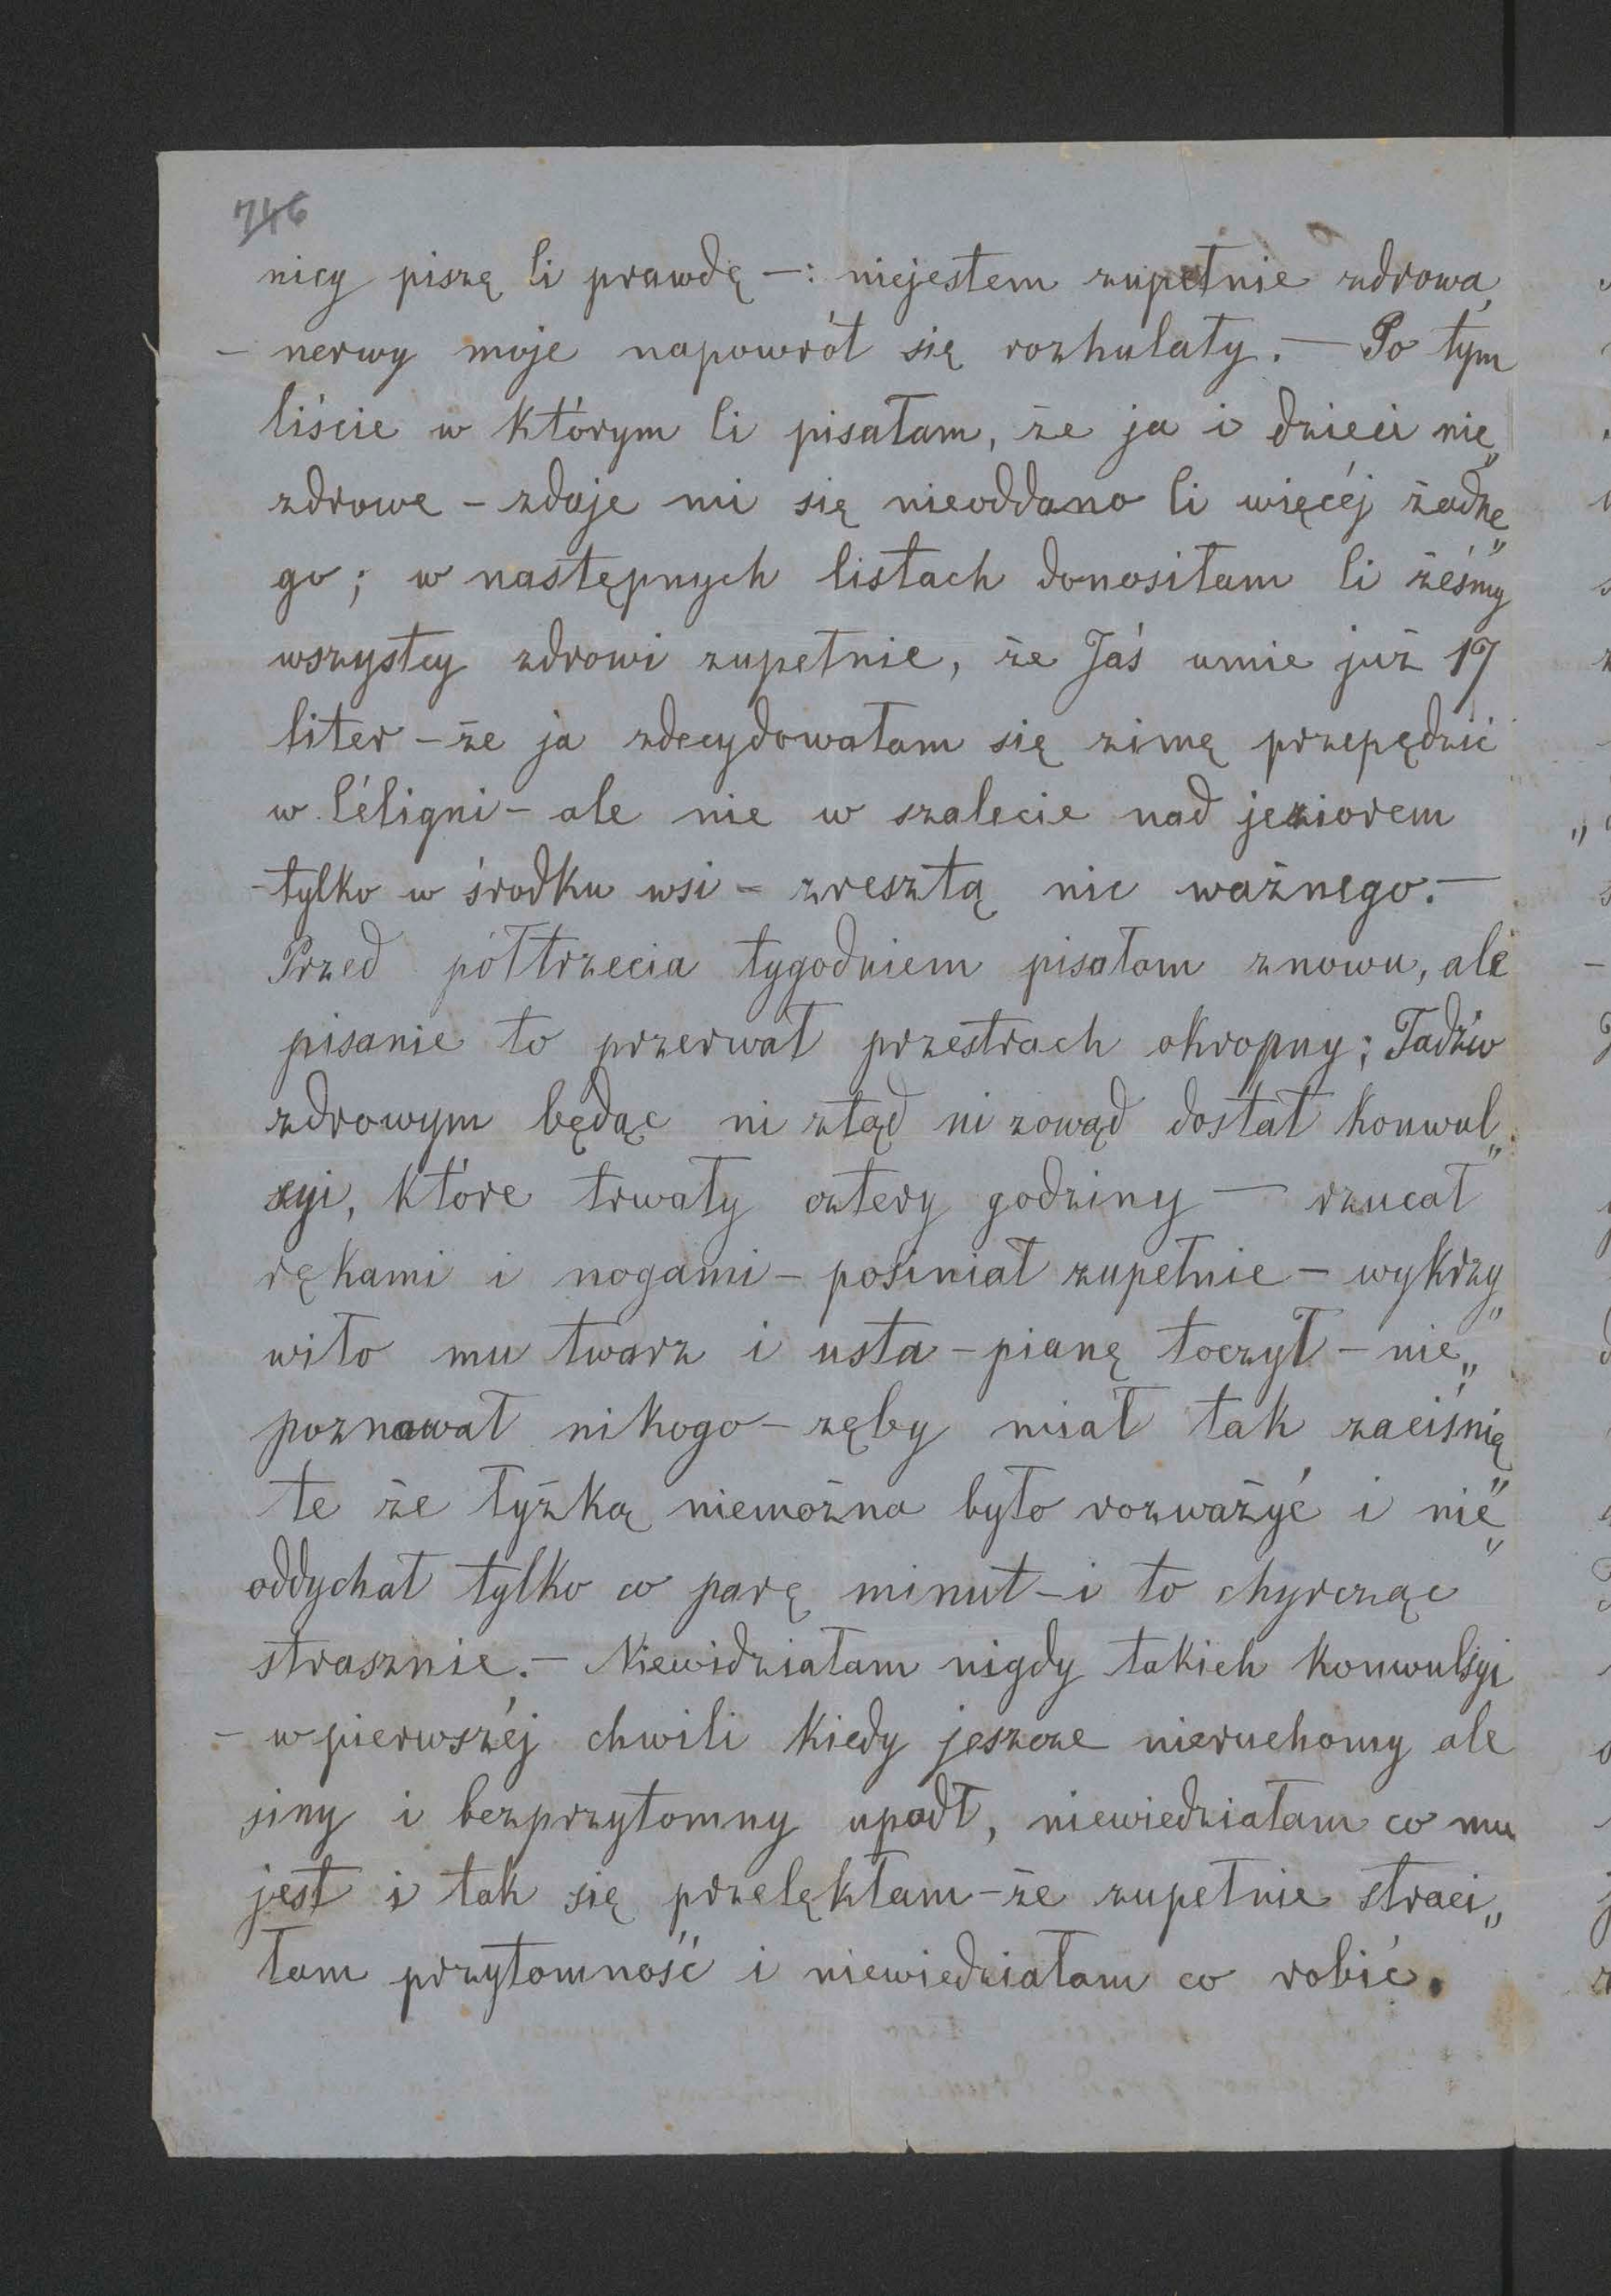 746
nicy piszę Ci prawdę —: niejestem zupełnie zdrowa,
— nerwy moje napowrót się rozhulały. — Po tym
liście w którym Ci pisałam, że ja i dzieci nie„
zdrowe – zdaje mi się nieoddano Ci więcéj żadne„
go; w następnych listach donosiłam Ci żeśmy
wszyscy zdrowi zupełnie, że Jaś umie już 17
liter – że ja zdecydowałam się zimę przepędzić
w Céligni – ale nie w szalecie nad jeziorem
– tylko w środku wsi – zresztą nic ważnego. —
Przed półtrzecia tygodniem pisałam znowu, ale
pisanie to przerwał przestrach okropny; Tadzio
zdrowym będąc ni ztąd ni zowąd dostał konwul„
syi, które trwały cztery godziny — rzucał
rękami i nogami – posiniał zupełnie – wykrzy„
wiło mu twarz i usta – pianę toczył – nie„
poznawał nikogo – zęby miał tak zaciśnię„
te że łyżką niemożna było rozważyć i nie„
oddychał tylko co parę minut – i to chyrcząc
strasznie. – Niewidziałam nigdy takich konwulsyi
– w pierwszéj chwili kiedy jeszcze nieruchomy ale
siny i bezprzytomny upadł, niewiedziałam co mu
jest i tak się przelękłam – że zupełnie straci„
łam przytomność i niewiedziałam co robić.